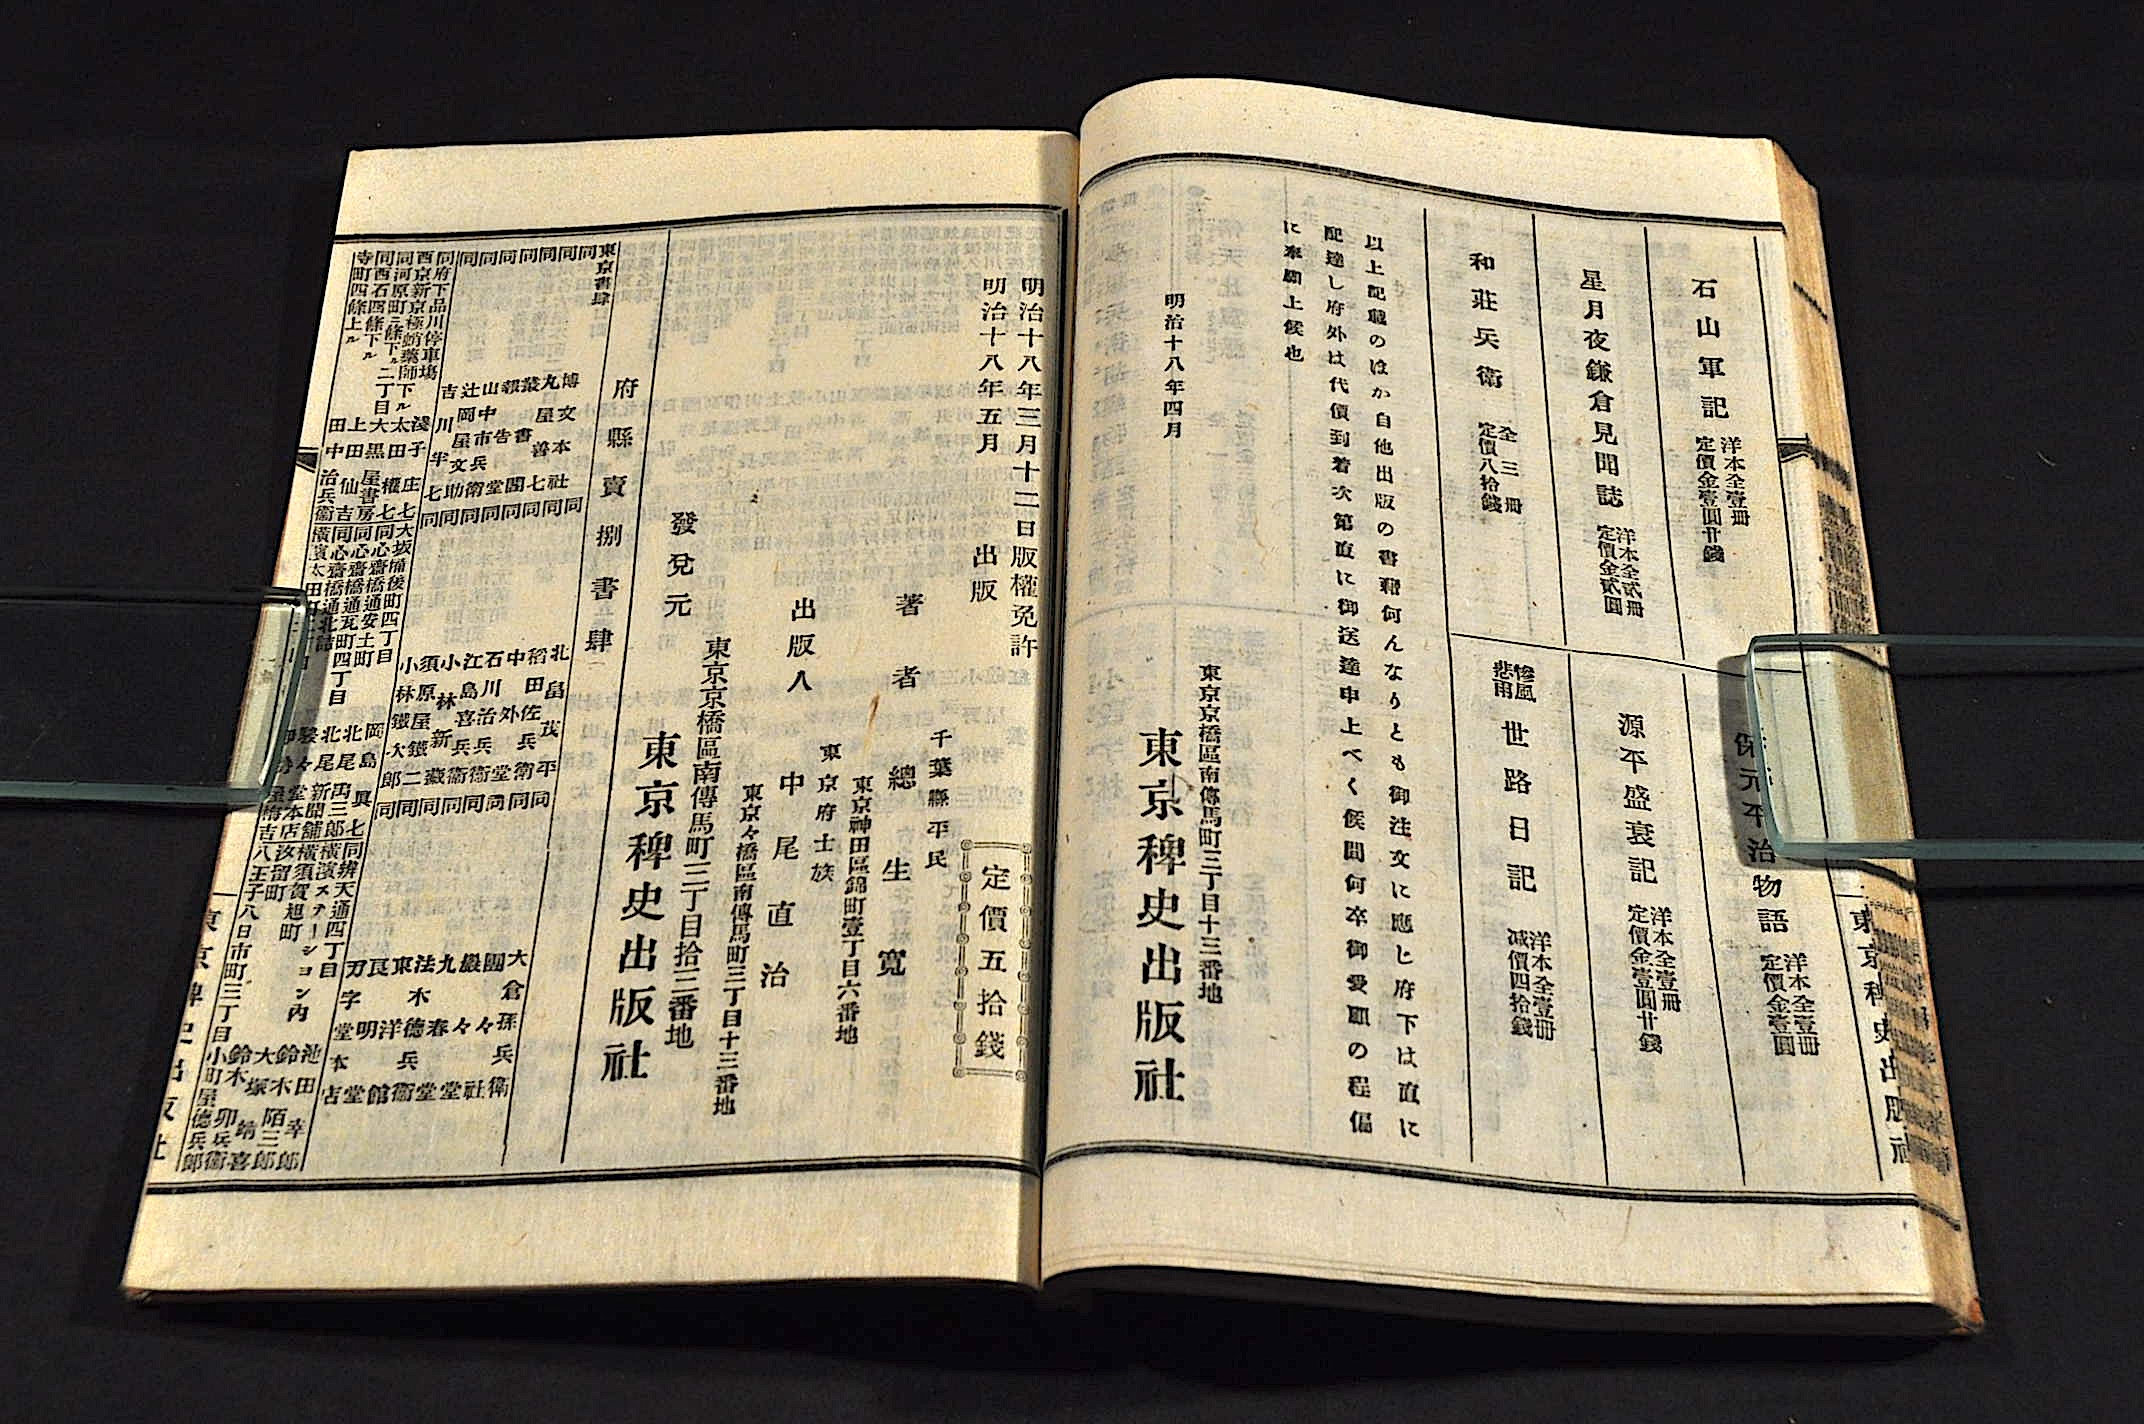 石山軍記 洋本全壹冊 定價金壹圓廿錢
星月夜鎌倉見聞誌 洋本全貳冊 定價金貳圓
和莊兵衛 全三冊 定價八拾錢
保元平治物語 洋本全壹冊 定價金壹圓
源平盛衰記 洋本全壹冊 定價金壹圓廿錢
慘風悲雨 世路日記 洋本全壹冊 减價四拾錢
以上記載のほか自他出版の書籍何んなりとも御注文に應じ府下は直に
配達し府外は代價到着次第直に御送達申上べく候間何卒御愛顧の程偏
に奉願上候也
明治十八年四月
東京京橋區南傳馬町三丁目十三番地
東京稗史出版社
東京稗史出版社
明治十八年三月十二日版權免許
明治十八年五月 出版
定價五拾錢
千葉縣平民
著者 總生寬
東京神田區錦町壹丁目六番地
東京府士族
出版人 中尾直治
東京々橋區南傳馬町三丁目十三番地
發兌元
東京京橋區南傳馬町三丁目拾三番地
東京稗史出版社
府縣賣捌書肆
東京書肆
同 博文本社
同 丸屋善七
同 叢書閣
同 報告堂
同 山中市兵衛
同 辻岡屋文助
同 吉川半七
同 北畠茂兵衛
同 稻田佐兵衛
同 中外堂
同 石川治兵衛
同 江島喜兵衛
同 小林新藏
同 須原屋鐵二
同 小林鐵太郎
同 大倉孫兵衛
同 團々社
同 巖々堂
同 九春堂
同 法木德兵衛
同 東洋館
同 良明堂
同 刀字堂本店
同府下品川停車塲 淺子庄七
西京新京極蛸藥師下ル 太田權七
同河原町三條下ル二丁目 大黑屋書房
同西石四條下ル 上田仙吉
寺町四條上ル 田中治兵衛
大坂備後町四丁目 岡島
同心齋橋通安土町 北尾
同心齋橋通瓦町四丁目 北尾新聞舖
同心齋橋通北詰 駸々堂本店
同辨天通四丁目 池田幸
橫濱ステーション内 鈴木陌三郎
橫須賀旭町 大塚靖喜
汐留町 鈴木卯兵衛
八王子八日市町三丁目 小町屋德兵郎
東京稗史出版社